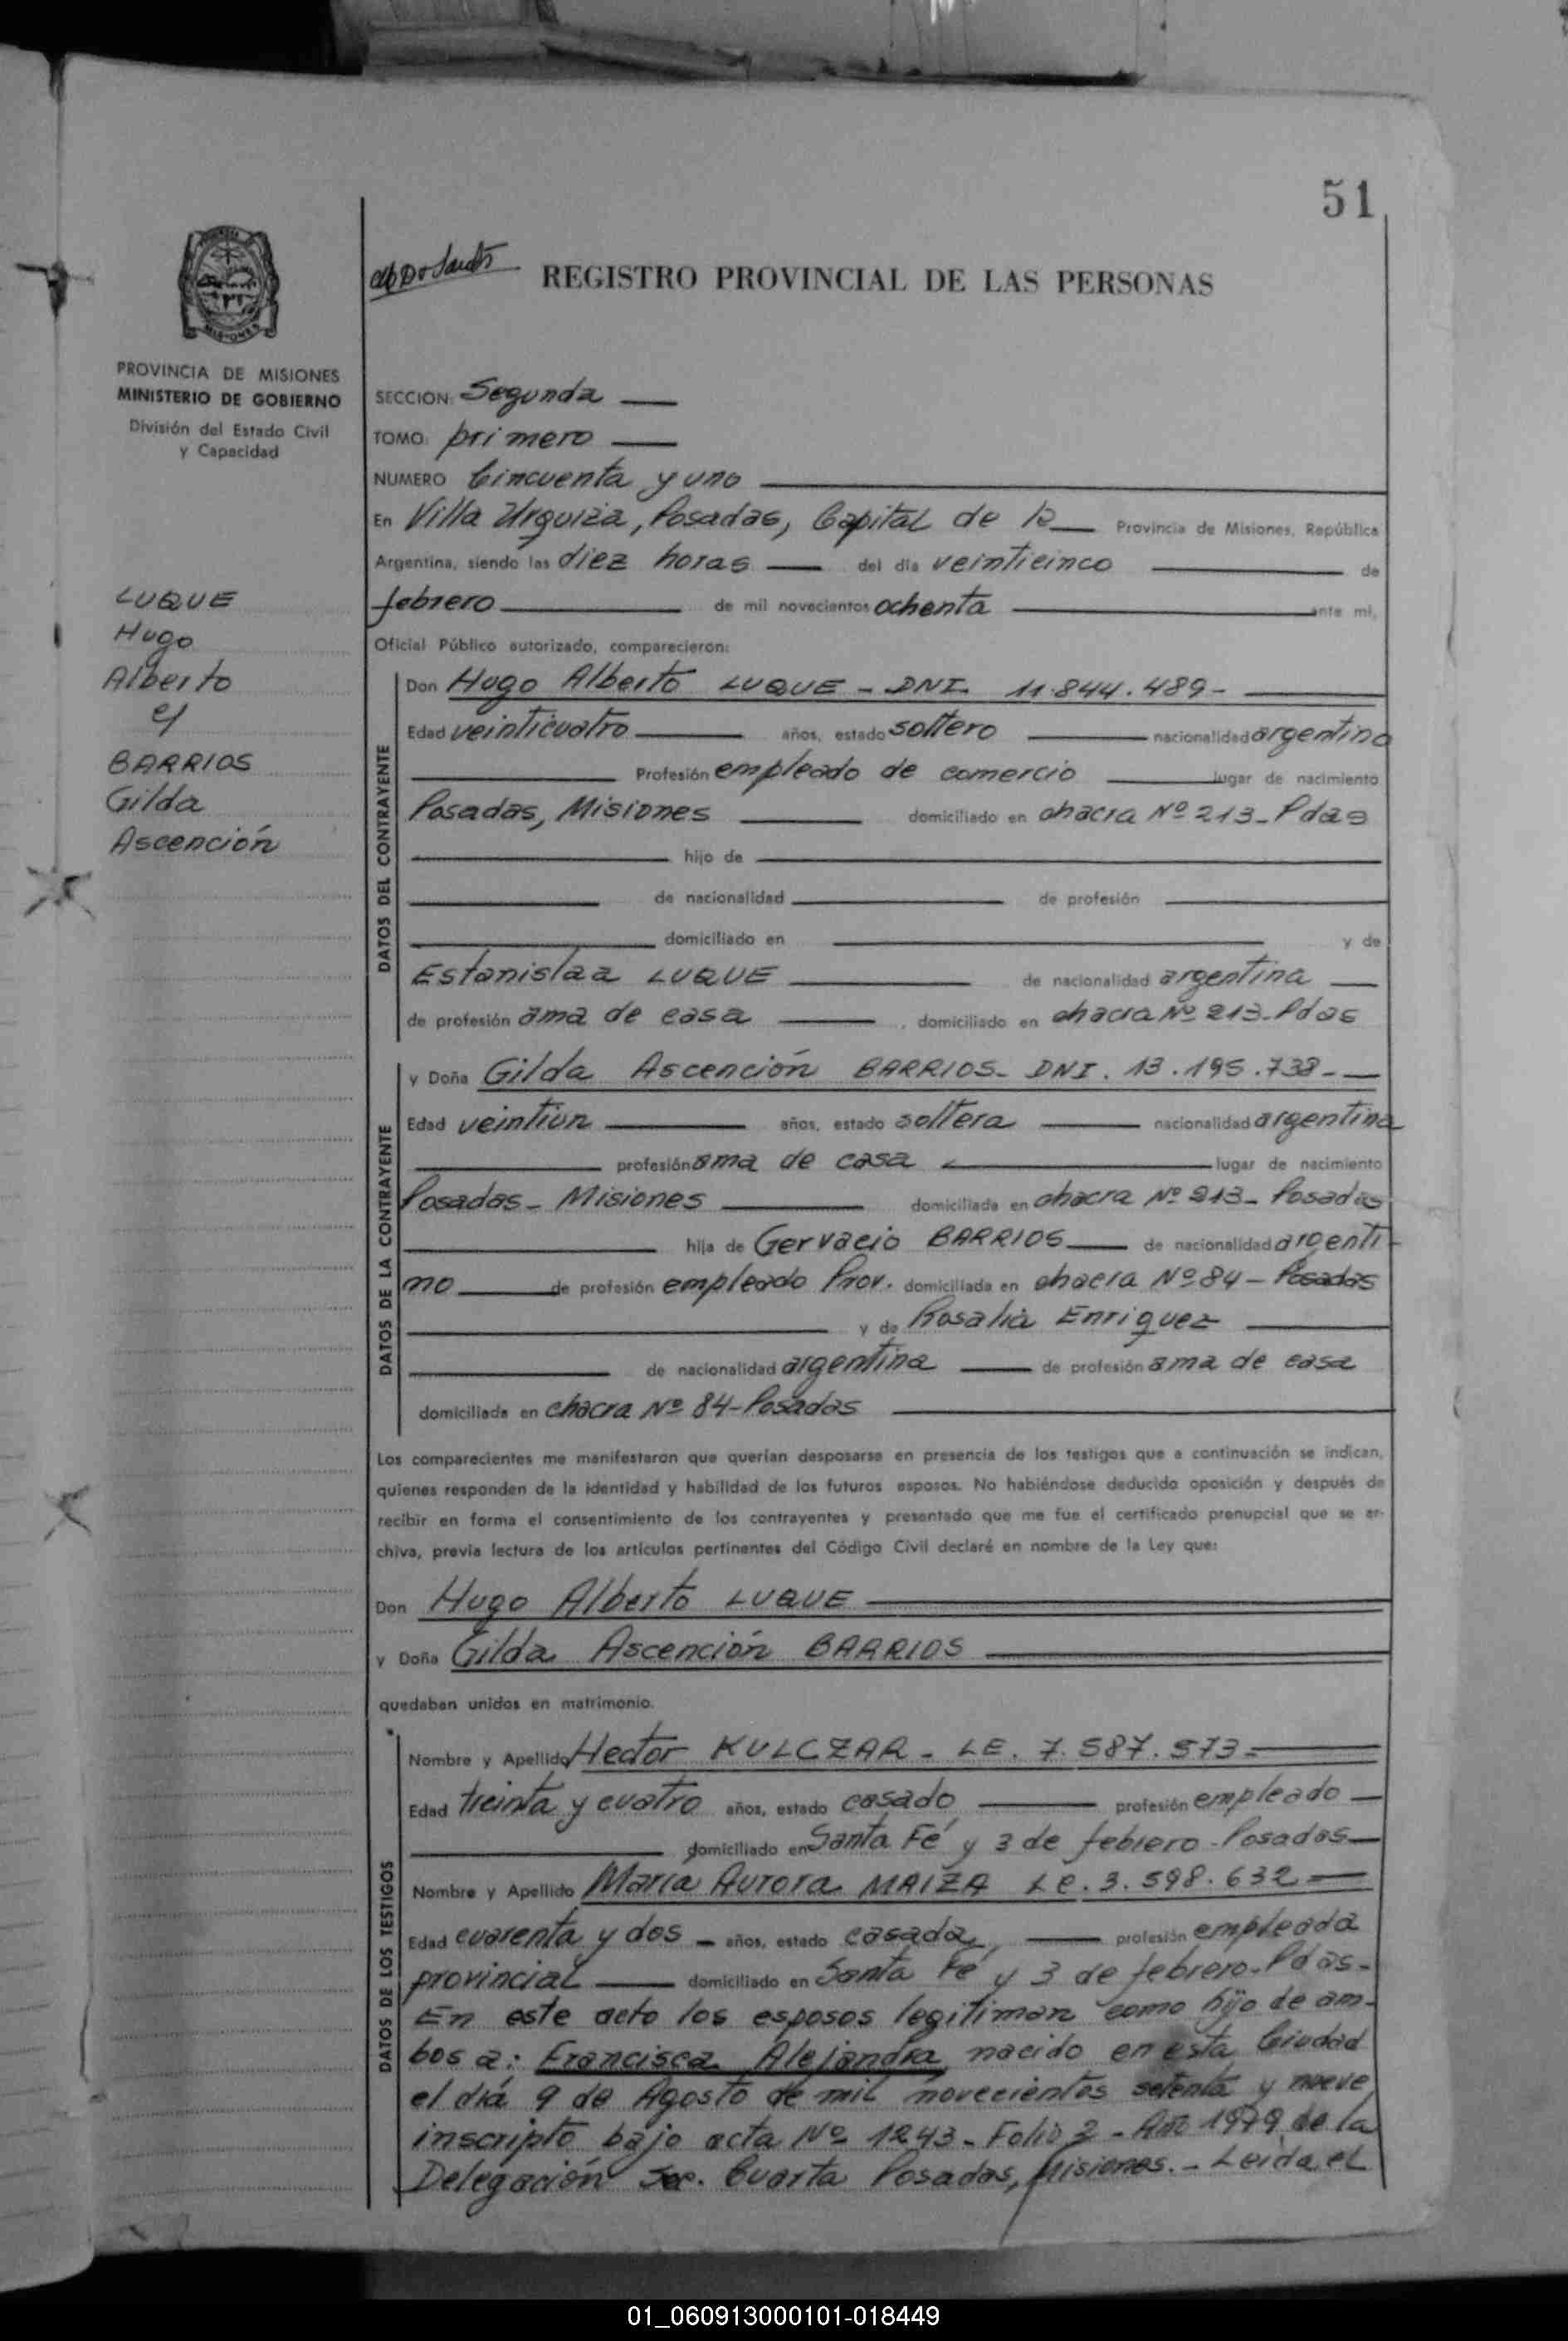 51
REGISTRO PROVINCIAL DE LAS PERSONAS
MISIONES
PROVINCIA DE MISIONES
MINISTERIO DE GOBIERNO
División del Estado Civil
y Capacidad
LUQUE
Hugo
Alberto
BARRIOS
Gilda
Ascención
SECCION: Segunda
TOMO: primero
NUMERO Cincuenta y uno
En Villa Urquiza, Posadas, Capital de la Provincia de Misiones, República
Argentina, siendo las diez horas del día veinticinco de
febrero de mil novecientos ochenta ante mí,
Oficial Público autorizado, comparecieron:
DATOS DEL CONTRAYENTE
Don Hugo Alberto LUQUE - DNI. 11.844.489-
Edad veinticuatro años, estado soltero nacionalidad argentino
Profesión empleado de comercio lugar de nacimiento
Posadas, Misiones domiciliado en chacra Nº 213- Pdas
hijo de
de nacionalidad de profesión
domiciliado en y de
Estanislaa LUQUE de nacionalidad argentina
de profesión ama de casa, domiciliado en chacra Nº 213- Pdas
DATOS DE LA CONTRAYENTE
y Doña Gilda Ascención BARRIOS- DNI. 13.195.738-
Edad veintiun años, estado soltera nacionalidad argentina
profesión ama de casa lugar de nacimiento
Posadas- Misiones domiciliada en chacra Nº 213- Posadas
hija de Gervacio BARRIOS de nacionalidad argenti-
no de profesión empleado Prov. domiciliada en chacra Nº 84- Posadas
y de Rosalia Enriquez
de nacionalidad argentina de profesión ama de casa
domiciliada en chacra Nº 84-Posadas
Los comparecientes me manifestaron que querían desposarse en presencia de los testigos que a continuación se indican,
quienes responden de la identidad y habilidad de los futuros esposos. No habiéndose deducido oposición y después de
recibir en forma el consentimiento de los contrayentes y presentado que me fue el certificado prenupcial que se ar-
chiva, previa lectura de los artículos pertinentes del Código Civil declaré en nombre de la Ley que:
Don Hugo Alberto LUQUE
y Doña Gilda Ascención BARRIOS
quedaban unidos en matrimonio.
DATOS DE LOS TESTIGOS
Nombre y Apellido Hector KULCZAR - LE. 7.587.573-
Edad treinta y cuatro años, estado casado profesión empleado
domiciliado en Santa Fé y 3 de febrero - Posadas
Nombre y Apellido María Aurora MAIZA LE. 3.598.632
Edad cuarenta y dos - años, estado casada, profesión empleada
provincial domiciliado en Santa Fé y 3 de febrero- Pdas-
En este acto los esposos legitiman como hijo de am-
bos a: Francisca Alejandra nacido en esta Ciudad
el día 9 de Agosto de mil novecientos setenta y nueve
inscripto bajo acta Nº 1243- Folio 2 - Año 1979 de la
Delegación Sec. Cuarta Posadas, Misiones.- Leida el
01_060913000101-018449